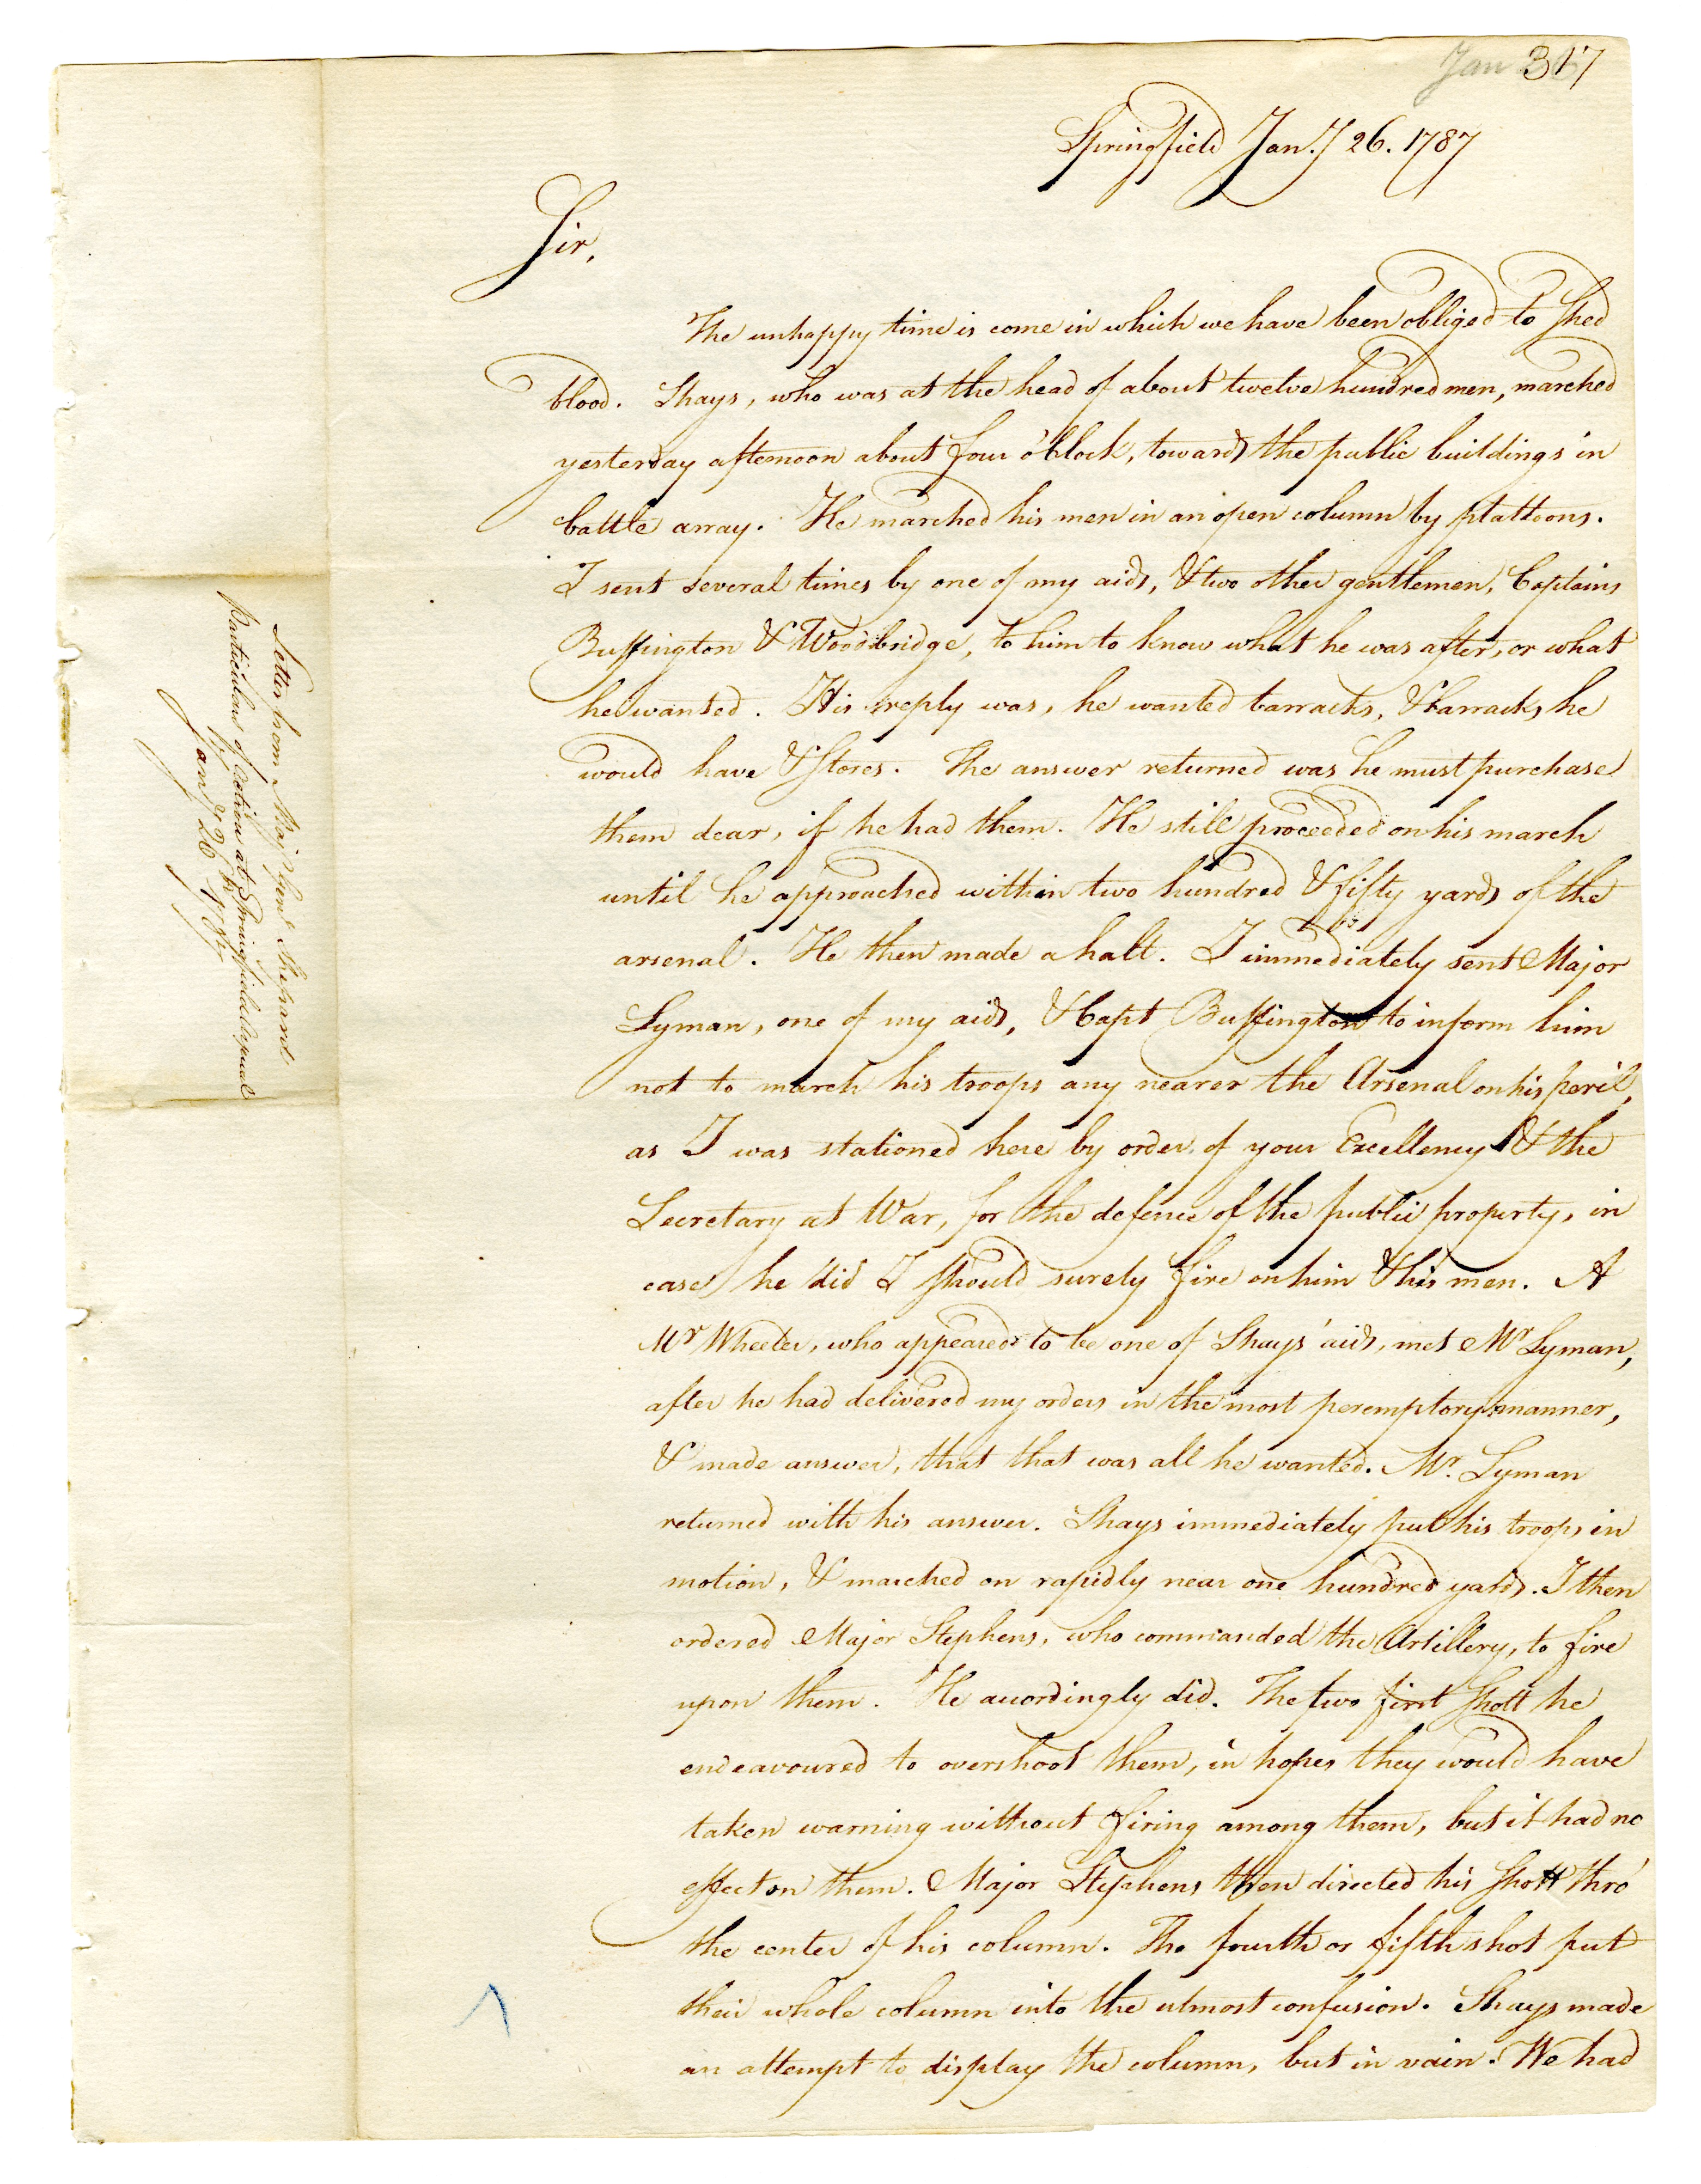 Jan 317
Springfield Jan.y 26. 1787
Sir,
The unhappy time is come in which we have been obliged to shed
blood. Shays, who was at the head of about twelve hundred men, marched
yesterday afternoon about four o'Clock, towards the public buildings in
battle array. He marched his men in an open column by plattoons.
I sent several times by one of my aids, & two other gentlemen, Captains
Buffington & Woodbridge, to him to know what he was after, or what
he wanted. His reply was, he wanted barracks, & barracks he
would have & stores. The answer returned was he must purchase
them dear, if he had them. He still proceeded on his march
until he approached within two hundred & fifty yards of the
arsenal. He then made a halt. I immediately sent Major
Lyman, one of my aids, & Capt Buffington to inform him
not to march his troops any nearer the Arsenal on his peril,
as I was stationed here by order of your Excellency & the
Secretary at War, for the defence of the public property, in
case he did I should surely fire on him & his men. A
Mr Wheeler, who appeared to be one of Shays' aids, met Mr Lyman,
after he had delivered my orders in the most peremptory manner,
& made answer, that that was all he wanted. Mr. Lyman
returned with his answer. Shays immediately put his troops in
motion, & marched on rapidly near one hundred yards. I then
ordered Major Stephens, who commanded the Artillery, to fire
upon them. He accordingly did. The two first shott he
endeavoured to overshoot them, in hopes they would have
taken warning without firing among them, but it had no
effect on them. Major Stephens then directed his shott thro'
the center of his column. The fourth or fifth shot put
their whole column into the utmost confusion. Shays made
an attempt to display the column, but in vain. We had
Letter from Majr Genl Shepard
Particulars of Action at Springfield
Jany 26th 1787